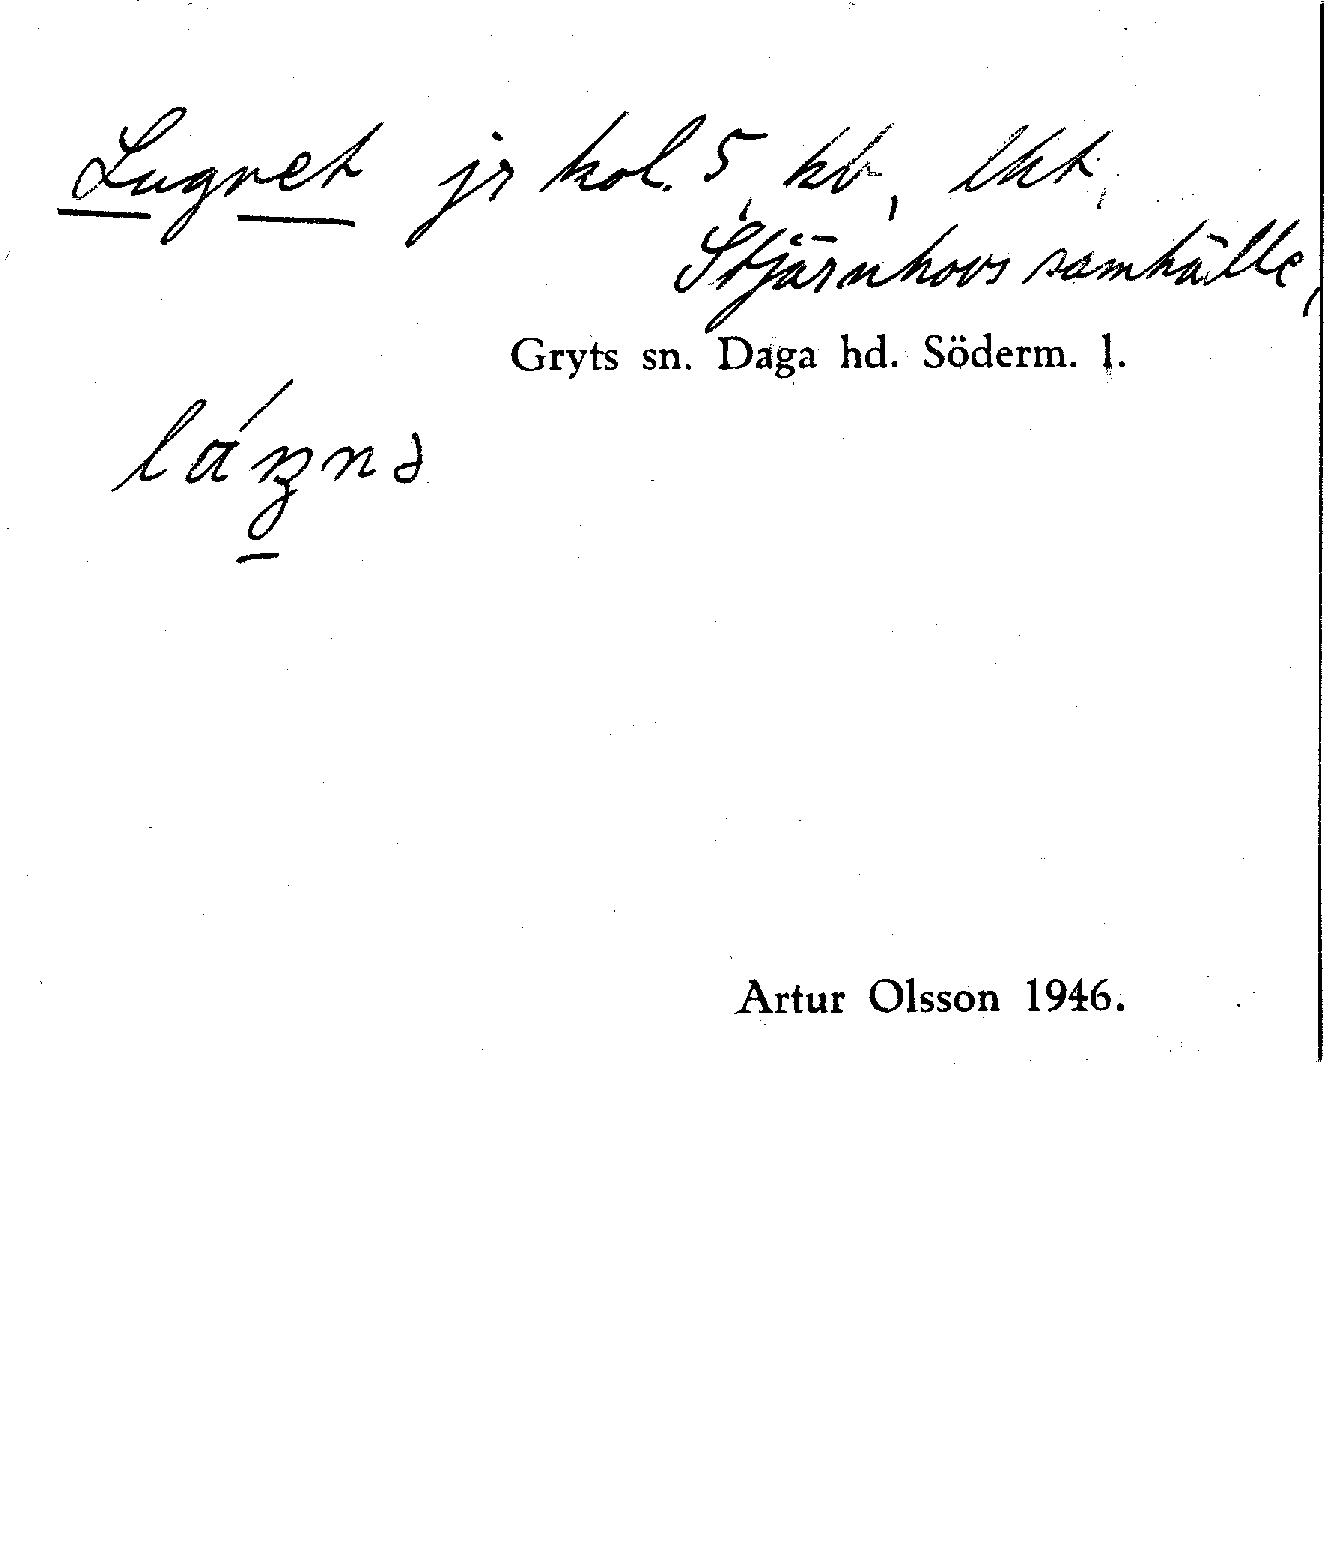 Lugnet jr kol. 5, kb, lkt,
Stjärnhovs samhälle,
Gryts sn. Daga hd. Söderm. l.
Artur Olsson 1946.